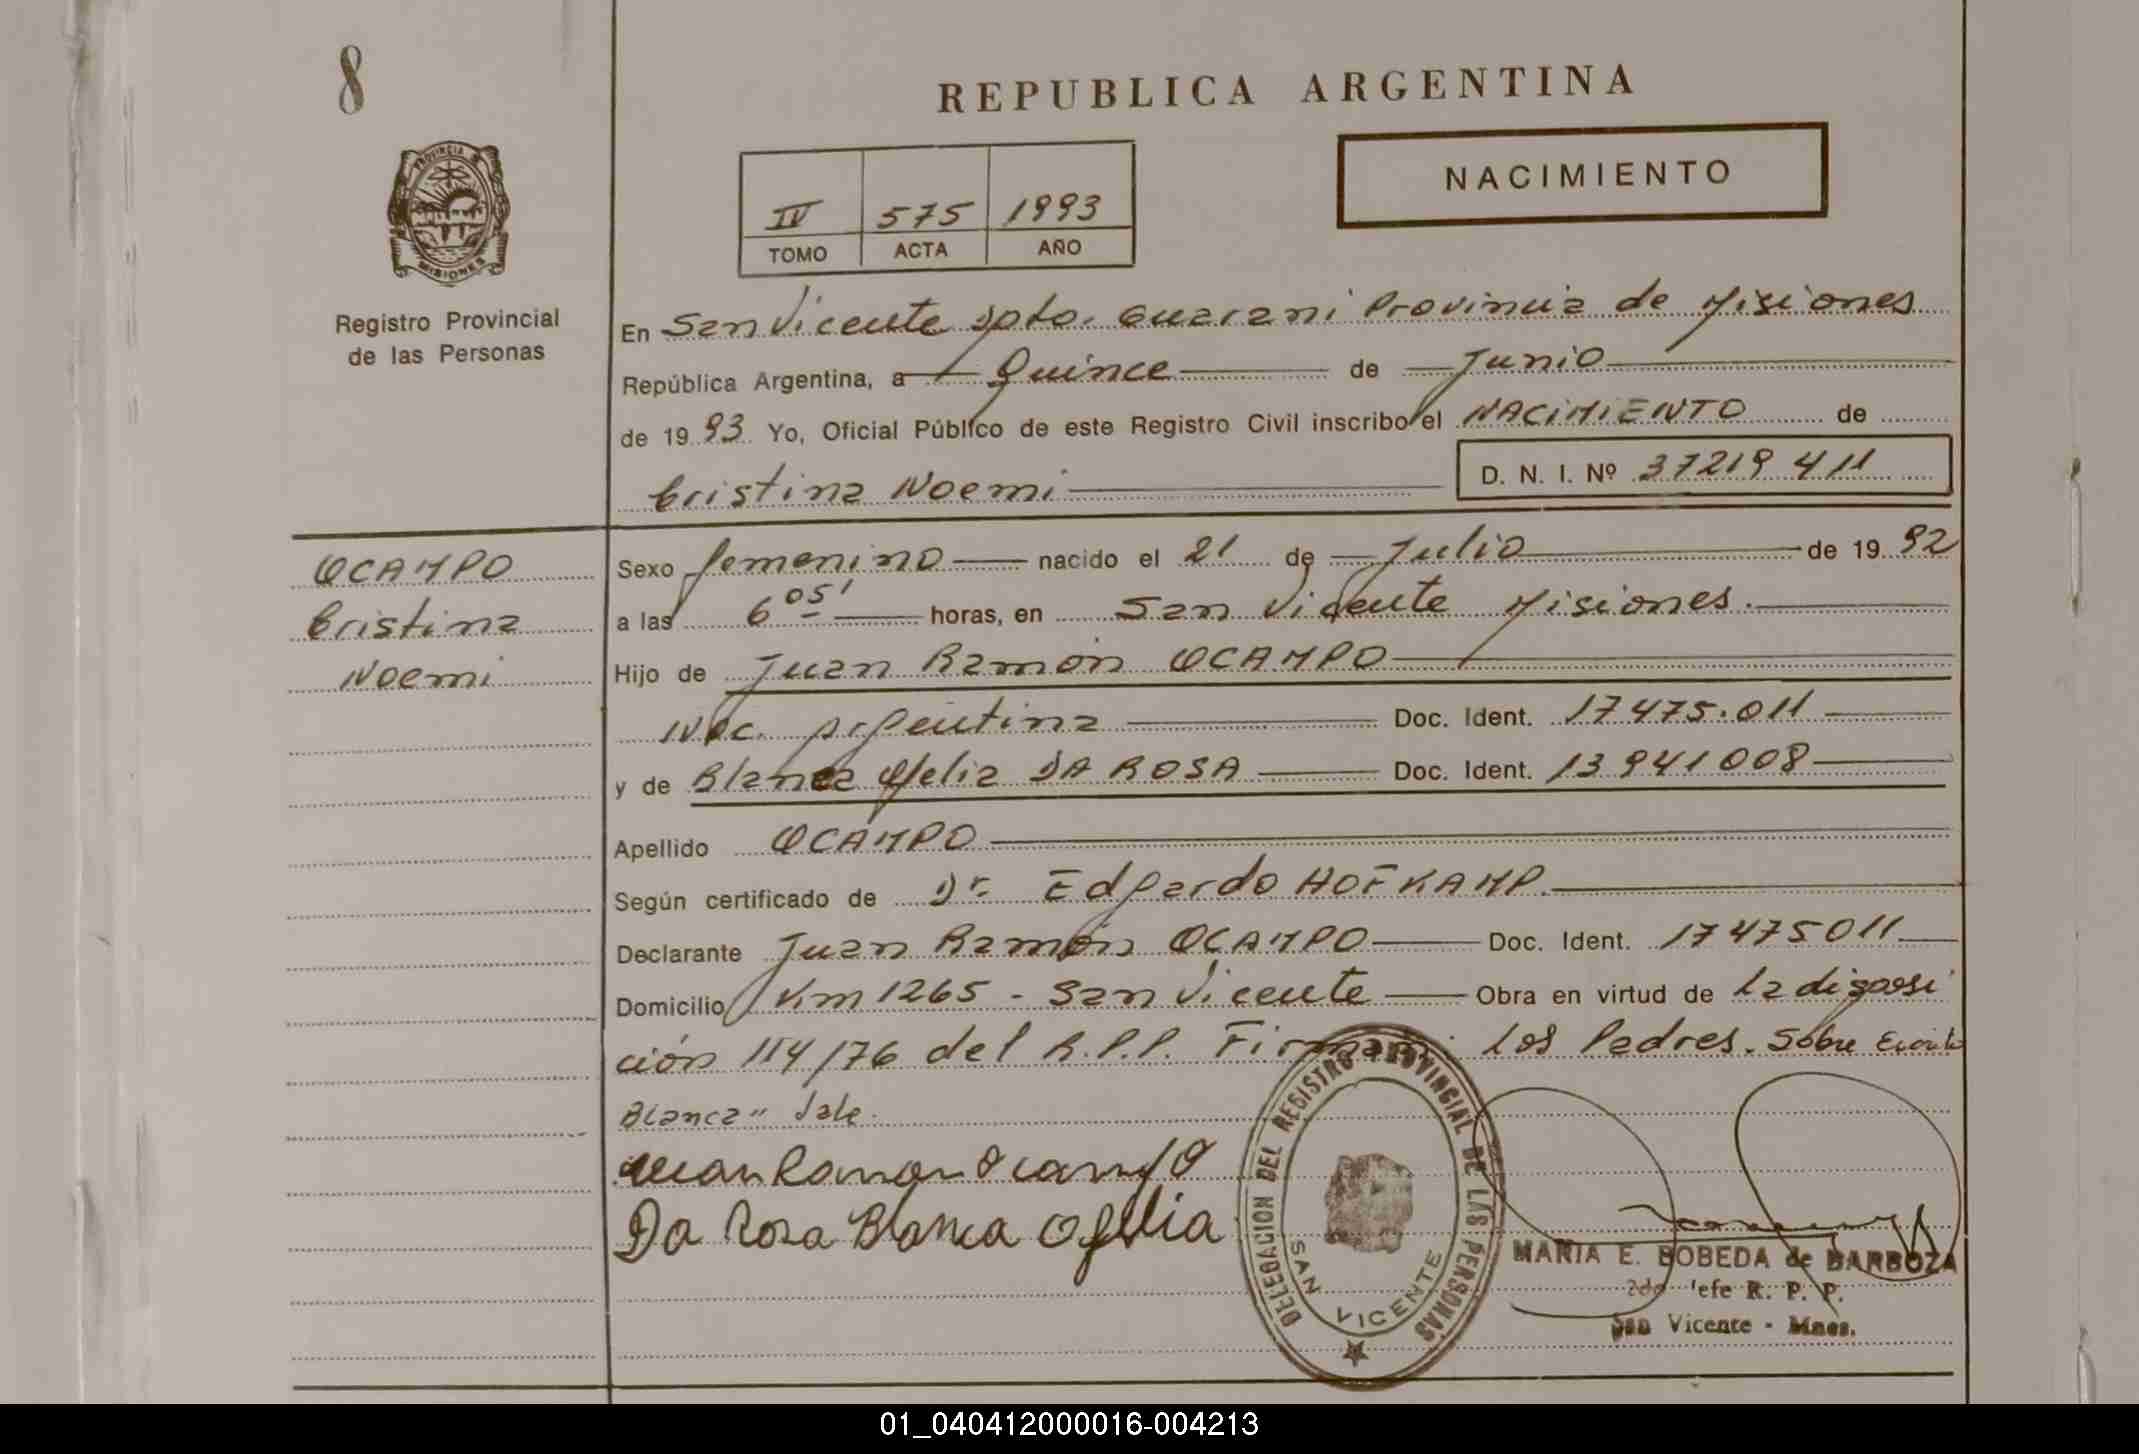 8
REPUBLICA ARGENTINA
NACIMIENTO
IV 575 1993
TOMO ACTA AÑO
PROVINCIA
MISIONES
Registro Provincial
de las Personas
En San Vicente Dpto. Guarani Provincia de Misiones
República Argentina, a Quince de Junio
de 1993 Yo, Oficial Público de este Registro Civil inscribo el NACIMIENTO de
Cristina Noemi D. N. I. Nº 37219411
OCAMPO
Cristina
Noemi
Sexo femenino nacido el 21 de Julio de 1992
a las 6 05' horas, en San Vicente Misiones.
Hijo de Juan Ramón OCAMPO
Nac. Argentina Doc. Ident. 17475.011
y de Blanca Ofelia DA ROSA Doc. Ident. 13941008
Apellido OCAMPO
Según certificado de Dr. Edgardo HOFKAMP.
Declarante Juan Ramón OCAMPO Doc. Ident. 17475011
Domicilio Km 1265 - San Vicente Obra en virtud de la disposi
ción 114/76 del R.P.P. Firman: Los Padres. Sobre Escrito
Blanca" Vale.
Juan Ramon Ocampo
Da Rosa Blanca Ofelia
DELEGACION DEL REGISTRO PROVINCIAL DE LAS PERSONAS
SAN VICENTE
MARIA E. BOBEDA de BARBOZA
2do Jefe R. P. P.
San Vicente - Mnes.
01_040412000016-004213